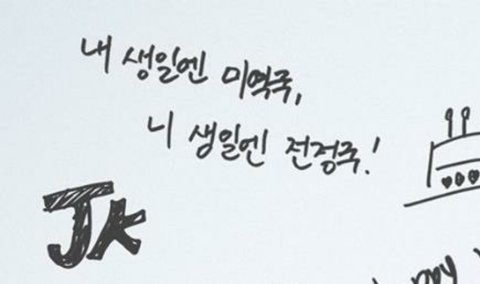 내 생일엔 미역국,
니 생일엔 전정국!
JK